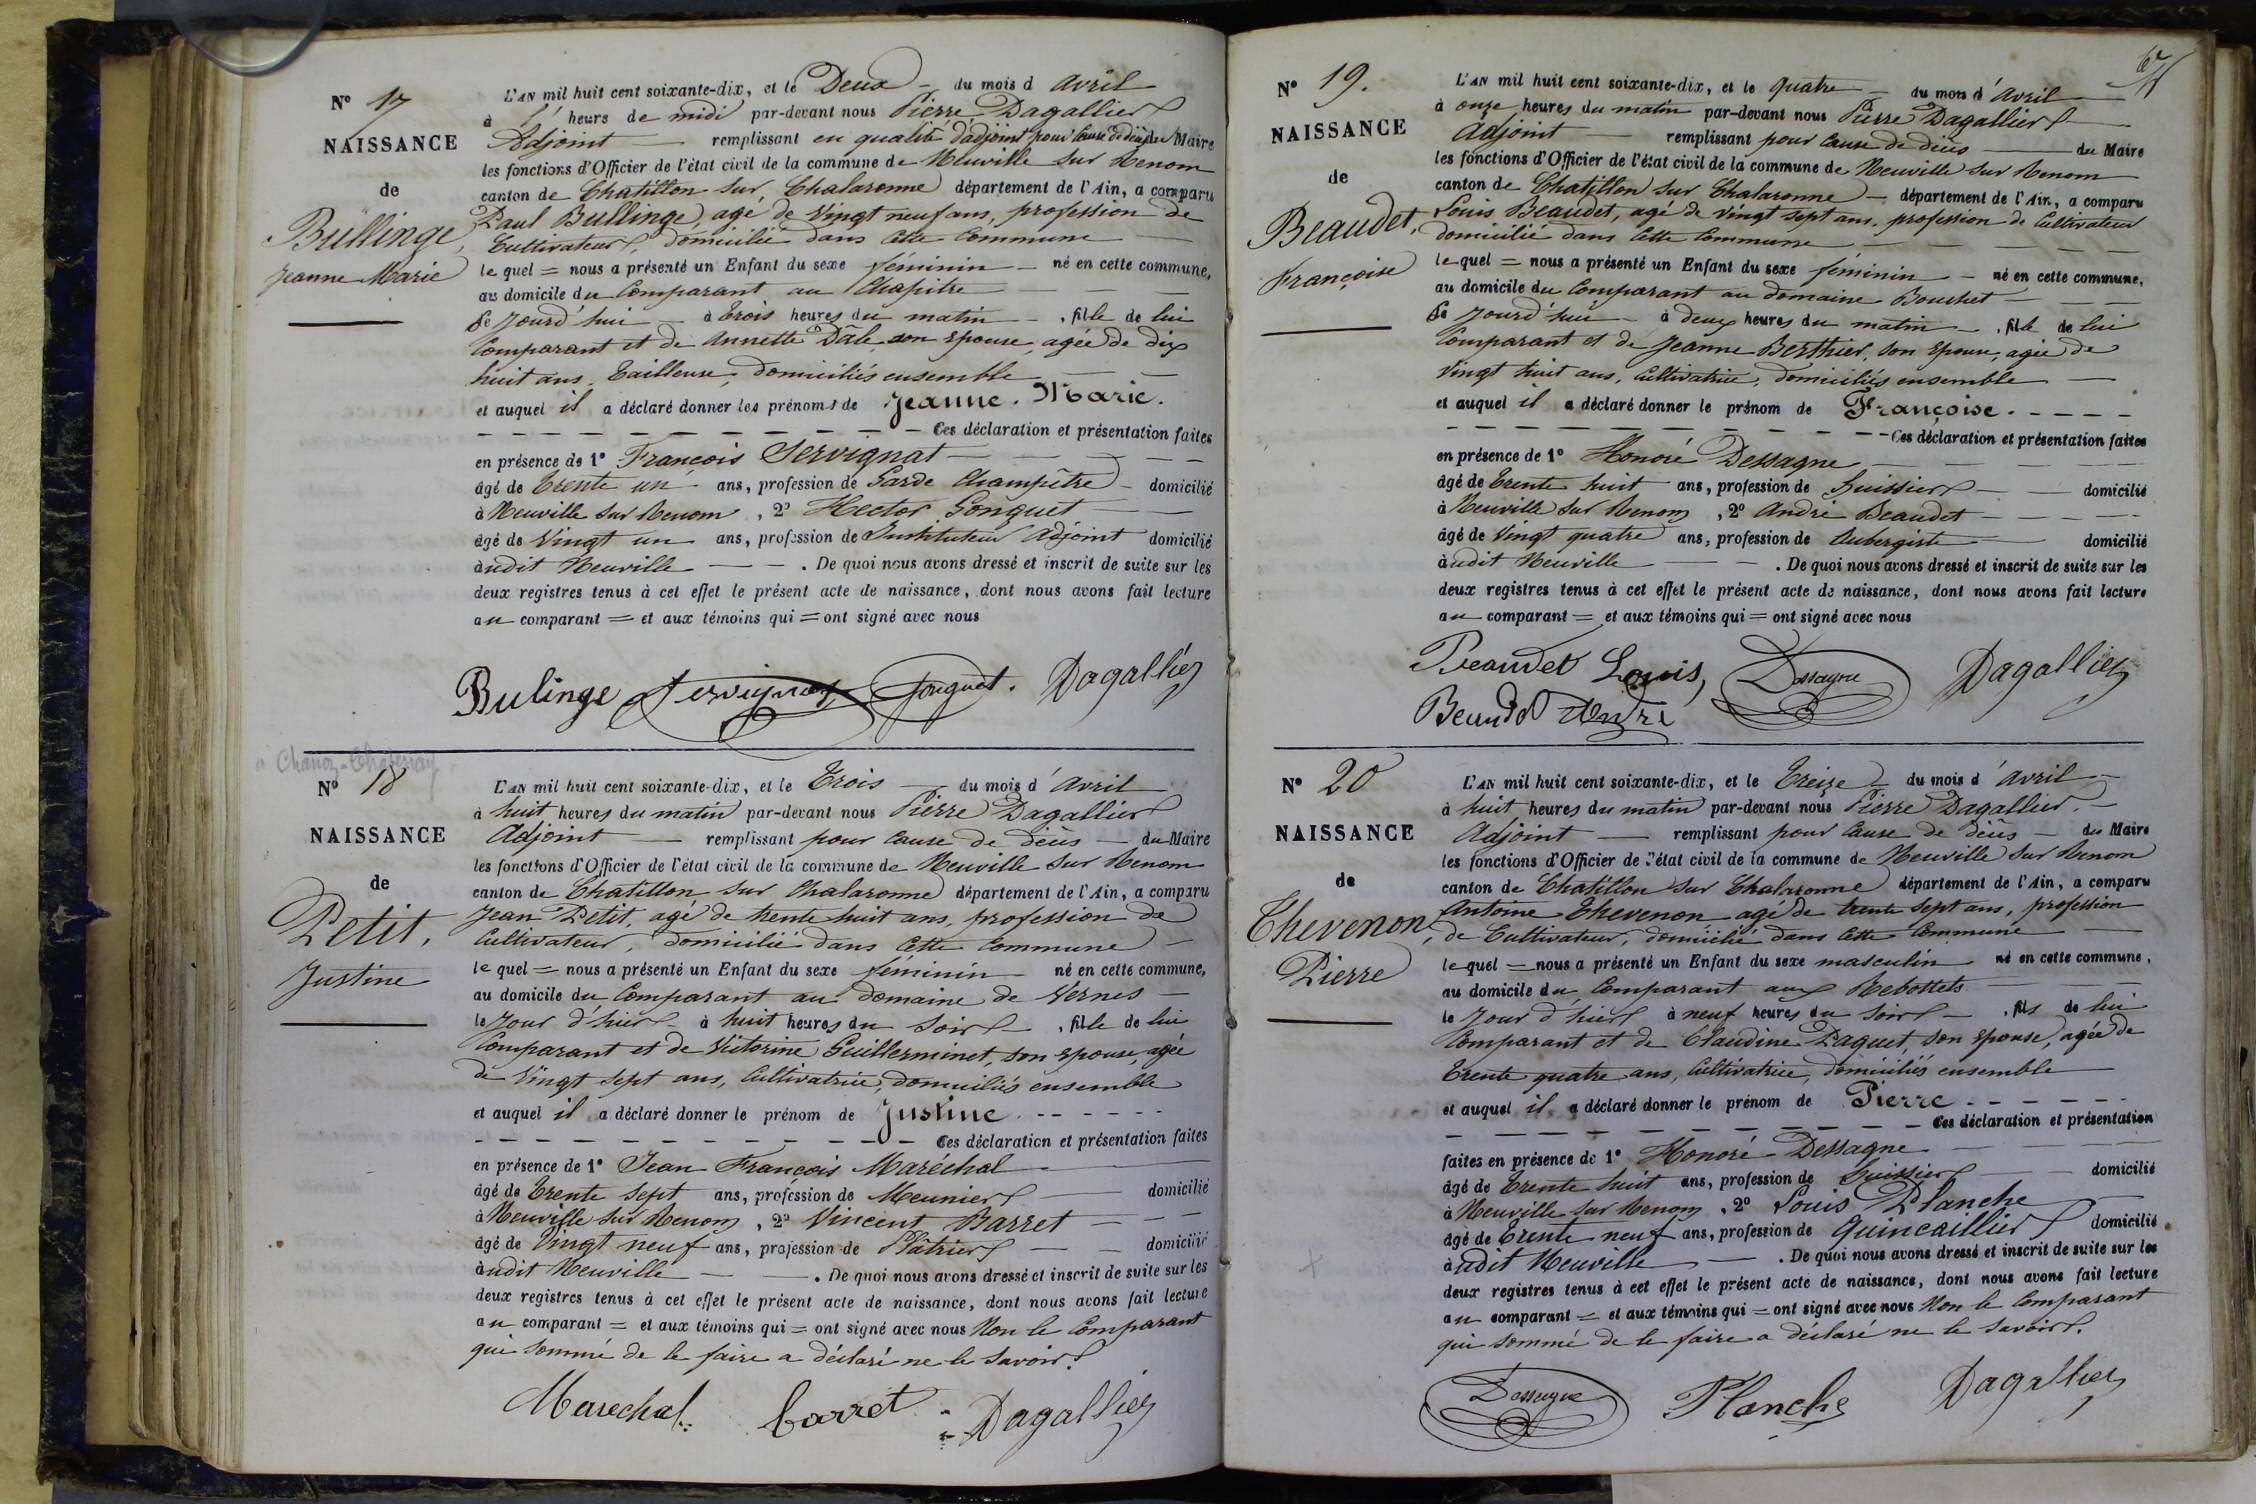 N° 17
NAISSANCE
de
Bullinge,
Jeanne Marie
L'AN mil huit cent soixante-dix, et le Deux du mois d'avril
à 1' heurs de midi par-devant nous Pierre Dagallier
Adjoint remplissant en qualité d'adjoint pour cause de décès du Maire
les fonctions d'Officier de l'état civil de la commune de Neuville sur Renom
canton de Chatillon sur Chalaronne département de l'Ain, a comparu
Paul Bullinge, agé de vingt neuf ans, profession de
Cultivateur, domicilié dans cette commune
le quel = nous a présenté un Enfant du sexe féminin né en cette commune,
au domicile du Comparant au Chapitre
Ce jourd'hui à trois heures du matin, fille de lui
Comparant et de Annette Dâle, son épouse, agée de dix
huit ans, tailleuse, domiciliés ensemble
et auquel il a déclaré donner les prénoms de Jeanne. Marie.
Ces déclaration et présentation faites
en présence de 1° François Servignat
âgé de trente un ans, profession de Garde Champêtre domicilié
à Neuville sur Renom, 2° Hector Gonguet
âgé de vingt un ans, profession de Instituteur Adjoint domicilié
àudit Neuville. De quoi nous avons dressé et inscrit de suite sur les
deux registres tenus à cet effet le présent acte de naissance, dont nous avons fait lecture
au comparant = et aux témoins qui = ont signé avec nous
Bulinge Servignat Gonguet. Dagallier
à Chanoz-Chatenay
N° 18
NAISSANCE
de
Petit,
Justine
L'AN mil huit cent soixante-dix, et le Trois du mois d'avril
à huit heures du matin par-devant nous Pierre Dagallier
Adjoint remplissant pour cause de décès du Maire
les fonctions d'Officier de l'état civil de la commune de Neuville sur Renom
canton de Chatillon sur Chalaronne département de l'Ain, a comparu
Jean Petit, agé de trente huit ans, profession de
Cultivateur, domicilié dans cette commune
le quel = nous a présenté un Enfant du sexe féminin né en cette commune,
au domicile du Comparant au domaine de Vernes
le jour d'hier à huit heures du soir, fille de lui
Comparant et de Victorine Guillerminet, son épouse, agée
de vingt sept ans, Cultivatrice, domiciliés ensemble
et auquel il a déclaré donner le prénom de Justine
Ces déclaration et présentation faites
en présence de 1° Jean François Maréchal
âgé de trente sept ans, profession de Meunier domicilié
à Neuville sur Renom, 2° Vincent Barret
âgé de vingt neuf ans, profession de Plâtrier domicilié
àudit Neuville. De quoi nous avons dressé et inscrit de suite sur les
deux registres tenus à cet effet le présent acte de naissance, dont nous avons fait lecture
au comparant = et aux témoins qui = ont signé avec nous Non le Comparant
qui sommé de le faire a déclaré ne le savoir.
Marechal barret Dagallier
67
N° 19.
NAISSANCE
de
Beaudet,
Françoise
L'AN mil huit cent soixante-dix, et le quatre du mois d'avril
à onze heures du matin par-devant nous Pierre Dagallier
Adjoint remplissant pour cause de décès du Maire
les fonctions d'Officier de l'état civil de la commune de Neuville sur Renom
canton de Chatillon sur Chalaronne département de l'Ain, a comparu
Louis Beaudet, agé de vingt sept ans, profession de Cultivateur
domicilié dans cette Commune
le quel = nous a présenté un Enfant du sexe féminin né en cette commune,
au domicile du Comparant au domaine Bouchet
Ce jourd'hui à deux heures du matin, fille de lui
Comparant et de Jeanne Berthier, son épouse, agée de
vingt huit ans, Cultivatrice, domiciliés ensemble
et auquel il a déclaré donner le prénom de Françoise.
Ces déclaration et présentation faites
en présence de 1° Honoré Dessagne
âgé de trente huit ans, profession de huissier domicilié
à Neuville sur Renom, 2° André Beaudet
âgé de vingt quatre ans, profession de Aubergiste domicilié
àudit Neuville. De quoi nous avons dressé et inscrit de suite sur les
deux registres tenus à cet effet le présent acte de naissance, dont nous avons fait lecture
au comparant = et aux témoins qui = ont signé avec nous
Beaudet Louis, Dessagne Dagallier
Beaudet André
N° 20
NAISSANCE
de
Thevenon,
Pierre
L'AN mil huit cent soixante-dix, et le Treize du mois d'avril
à huit heures du matin par-devant nous Pierre Dagallier.
Adjoint remplissant pour cause de décès du Maire
les fonctions d'Officier de l'état civil de la commune de Neuville sur Renom
canton de Chatillon sur Chalaronne département de l'Ain, a comparu
Antoine Thevenon agé de trente sept ans, profession
de Cultivateur, domicilié dans cette Commune
le quel = nous a présenté un Enfant du sexe masculin né en cette commune,
au domicile du Comparant aux Rebottets
le jour d'hier à neuf heures du soir, fils de lui
Comparant et de Claudine Paquet, son épouse, agée de
trente quatre ans, Cultivatrice, domiciliés ensemble
et auquel il a déclaré donner le prénom de Pierre
Ces déclaration et présentation
faites en présence de 1° Honoré Dessagne
âgé de trente huit ans, profession de huissier domicilié
à Neuville sur Renom, 2° Louis Planche
âgé de trente neuf ans, profession de quincaillier domicilié
àudit Neuville. De quoi nous avons dressé et inscrit de suite sur les
deux registres tenus à cet effet le présent acte de naissance, dont nous avons fait lecture
au comparant = et aux témoins qui = ont signé avec nous Non le Comparant
qui sommé de le faire a déclaré ne le savoir.
Dessagne Planche Dagallier